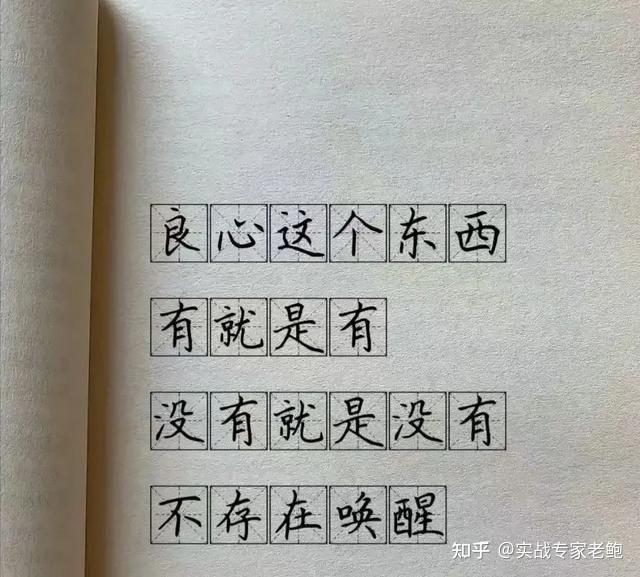 良心这个东西
有就是有
没有就是没有
不存在唤醒
知乎 @实战专家老鲍